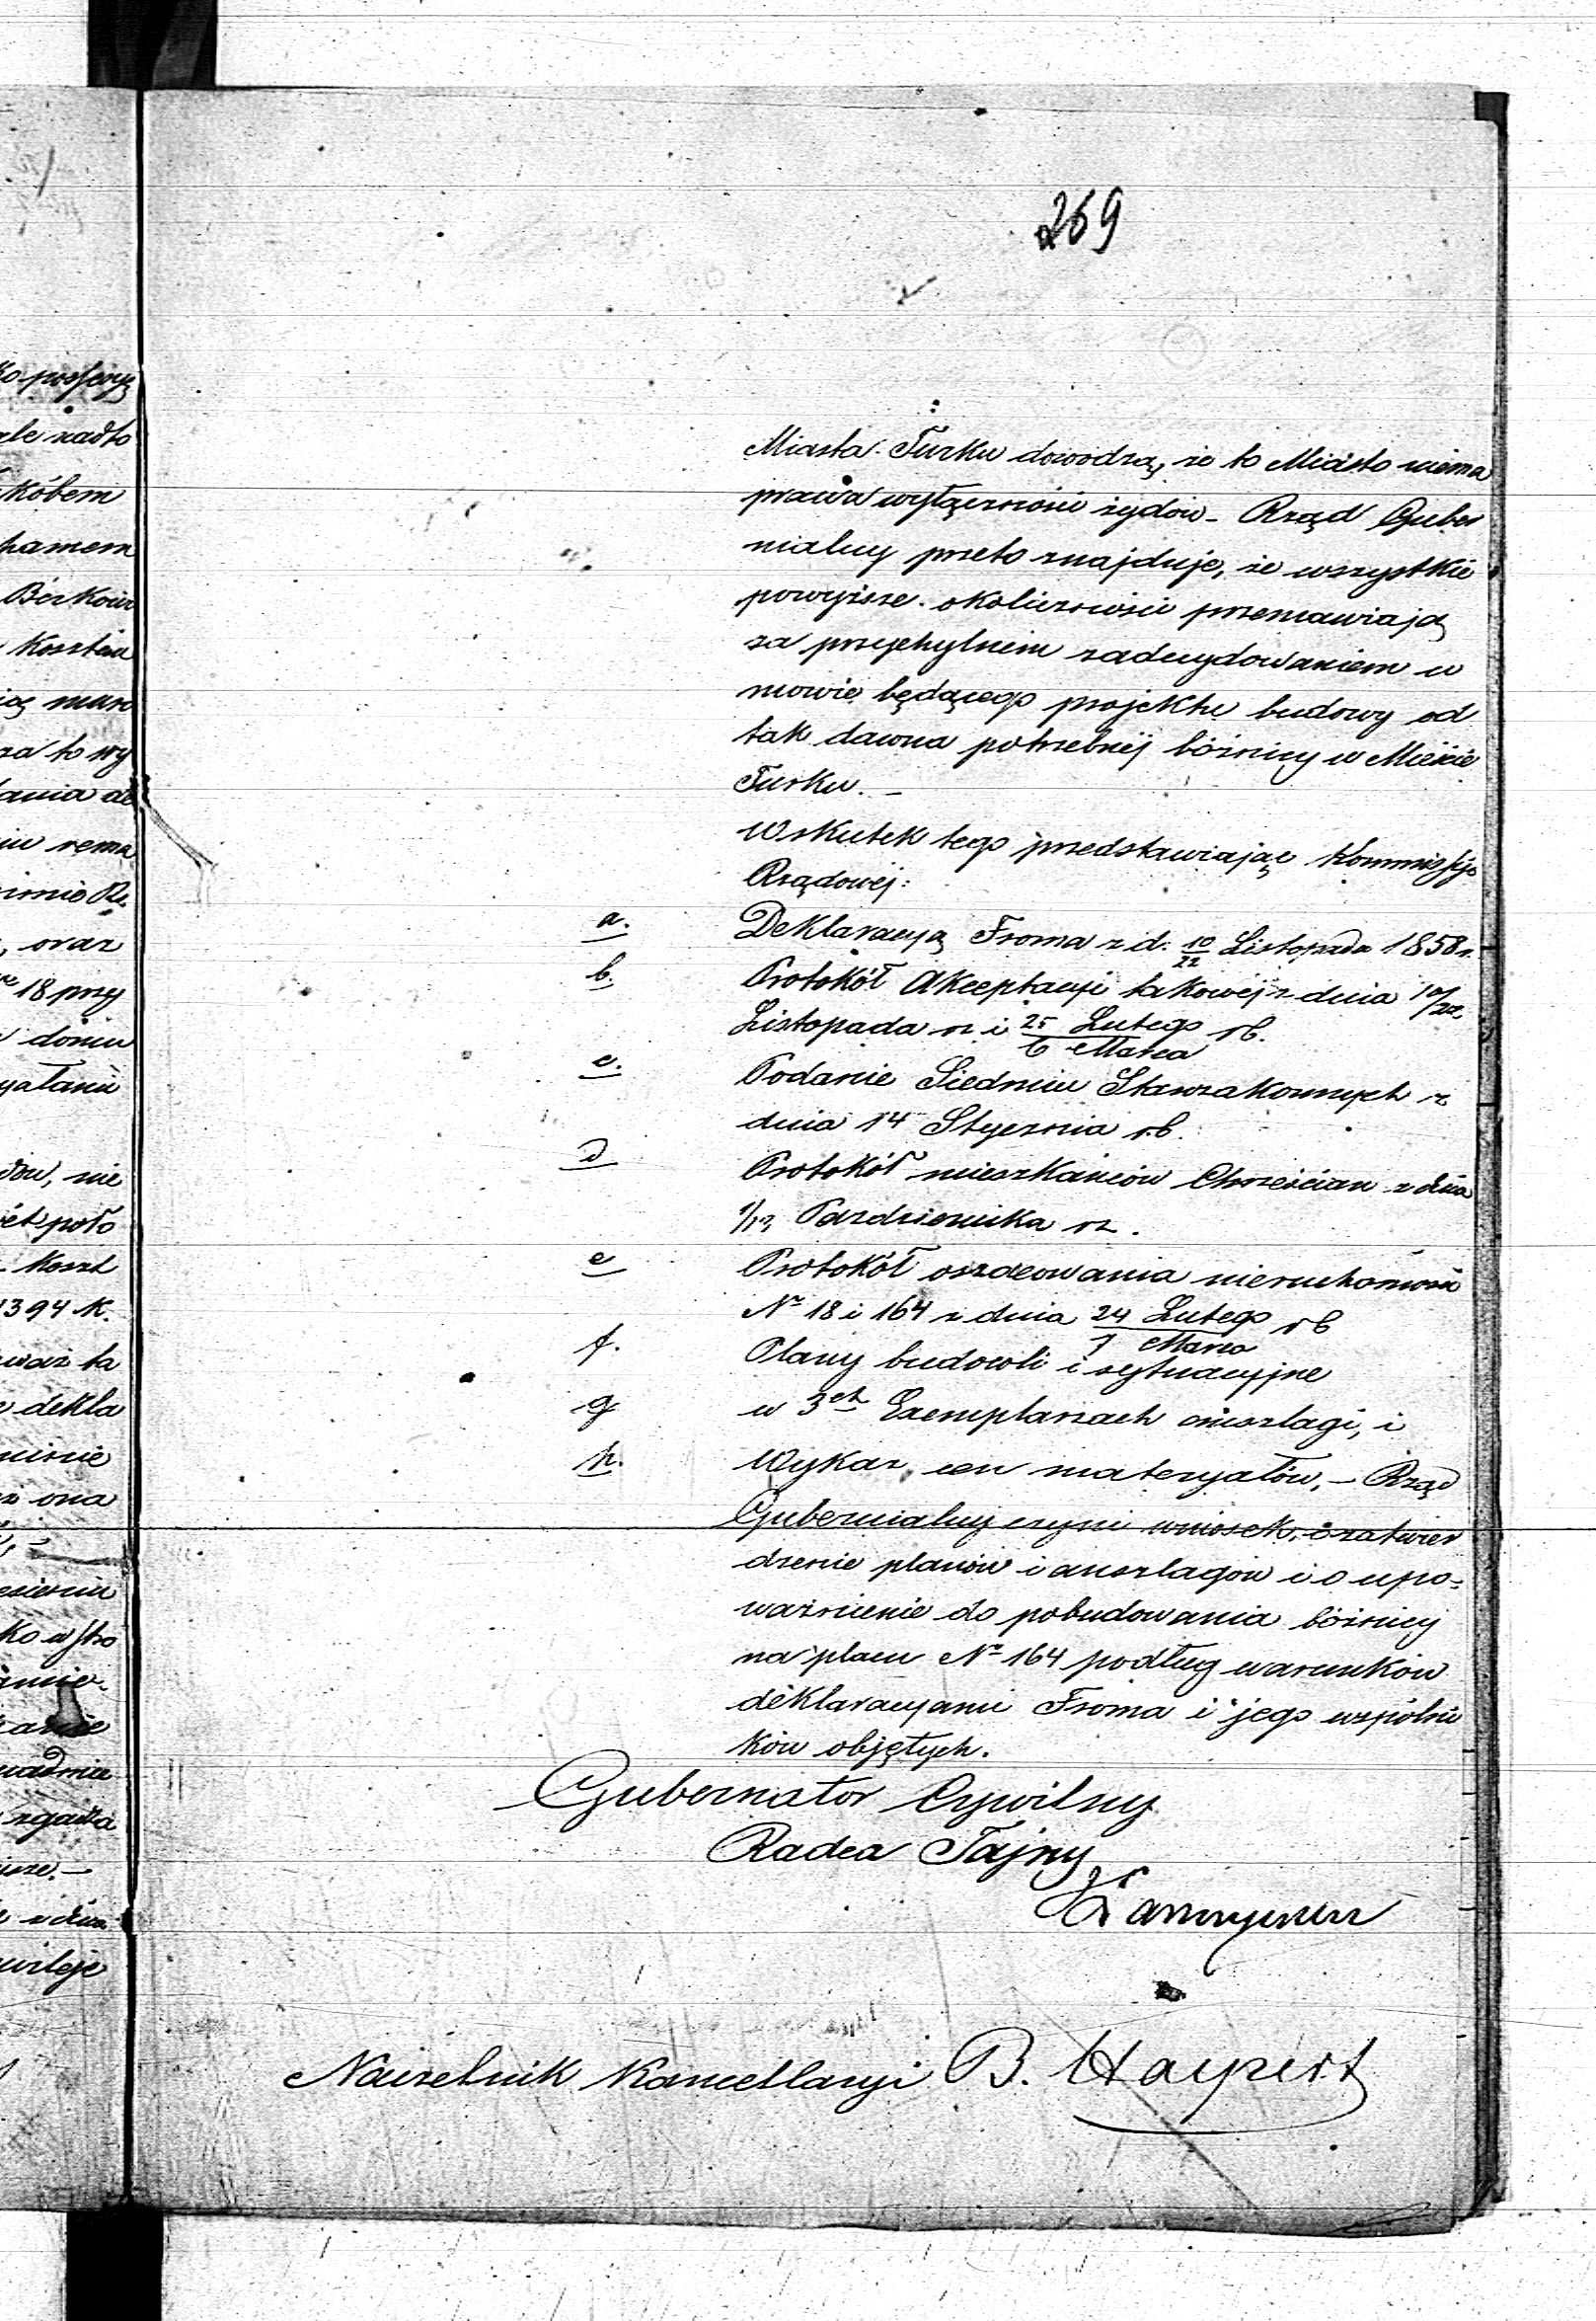 269
Miasta Turku dowodzą, że to Miasto niema
prawa wyłączności żydów – Rząd Guber
nialny przeto znajduje, że wszystkie
powyższe okoliczności przemawiają
za przychylnem zadecydowaniem w
mowie będącego projektu budowy od
tak dawna potrzebnéj bóżnicy w Mieście
Turku. –
Wskutek tego przedstawiając Kommissyi
Rządowéj:
a. Deklaracyą Froma z d. 10/22 Listopada 1858 r.
b. Protokół Akceptacyi takowéj z dnia 10/22
Listopada rz i 25 Lutego / 6 Marca rb.
c. Podanie Siedmiu Starozakonnych z
dnia 14 Stycznia rb.
d Protokół mieszkańców Chrześcian z dnia
1/13 Pazdziernika rz.
e Protokół oszacowania nieruchomości
No 18 i 164 z dnia 24 Lutego / Marca rb
f. Plany budowli i sytuacyjne
g w 3ch Exemplarzach anszlagi, i
h. Wykaz cen materyałów. – Rząd
Gubernialny czyni wniosek o zatwier
dzenie planów i anszlagów i o upo-
ważnienie do pobudowania bóżnicy
na placu No 164 podług warunków
deklaracyami Froma i jego wspólni
ków objętych.
Gubernator Cywilny
Radca Tajny
Naczelnik Kancellaryi B.
ale nadto
Kóbem
hamem
oraz
18 przy
nie
Koszt
1394 K.
dekla
ona